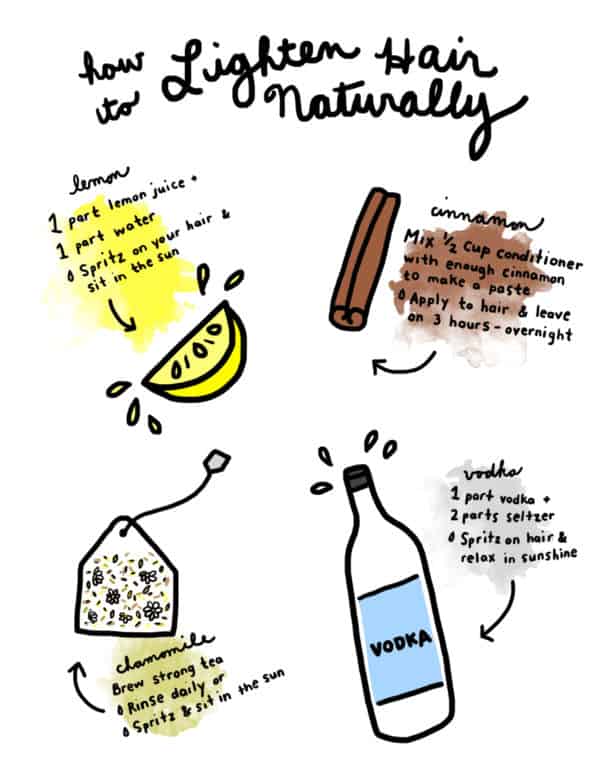 how to Lighten Hair
Naturally
lemon
1 part lemon juice +
1 part water
◊ Spritz on your hair &
sit in the sun
cinnamon
Mix 1/2 Cup conditioner
with enough cinnamon
to make a paste
◊ Apply to hair & leave
on 3 hours - overnight
chamomile
Brew strong tea
◊ Rinse daily or
◊ Spritz & sit in the sun
vodka
1 part vodka +
2 parts seltzer
◊ Spritz on hair &
relax in sunshine
VODKA